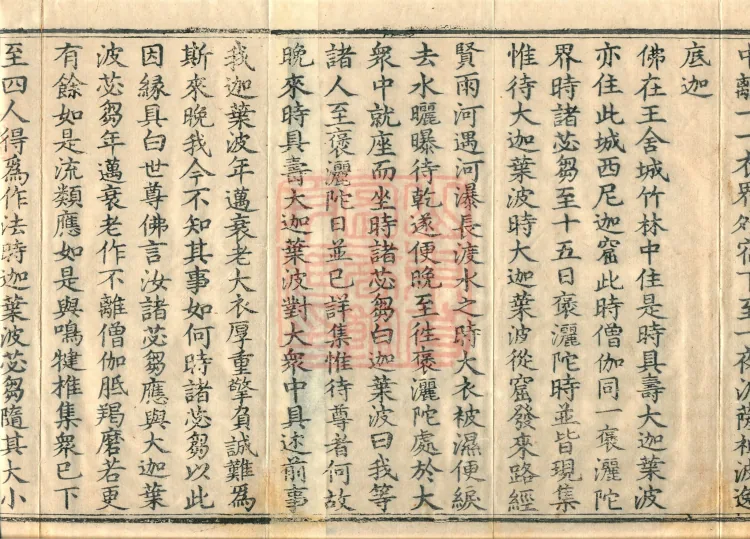 底迦
佛在王舍城竹林中住是時具壽大迦葉波
亦住此城西尼迦窟此時僧伽同一褒灑陀
界時諸苾芻至十五日褒灑陀時並皆現集
惟待大迦葉波時大迦葉波從窟發來路經
賢雨河遇河瀑長渡水之時大衣被濕便綟
去水曬曝待乾遂便晚至徃褒灑陀處於大
衆中就座而坐時諸苾芻白迦葉波曰我等
諸人至褒灑陀日並已詳集惟待尊者何故
晚來時具壽大迦葉波對大衆中具述前事
我迦葉波年邁衰老大衣厚重擎負誠難爲
斯來晚我今不知其事如何時諸苾芻以此
因緣具白世尊佛言汝諸苾芻應與大迦葉
波苾芻年邁衰老作不離僧伽胝羯磨若更
有餘如是流類應如是與鳴犍椎集衆已下
至四人得爲作法時迦葉波苾芻隨其大小